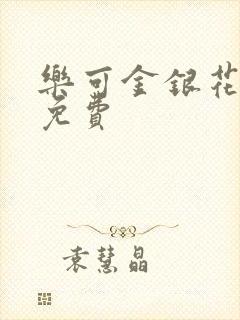 樂可金銀花
免費
袁慧晶